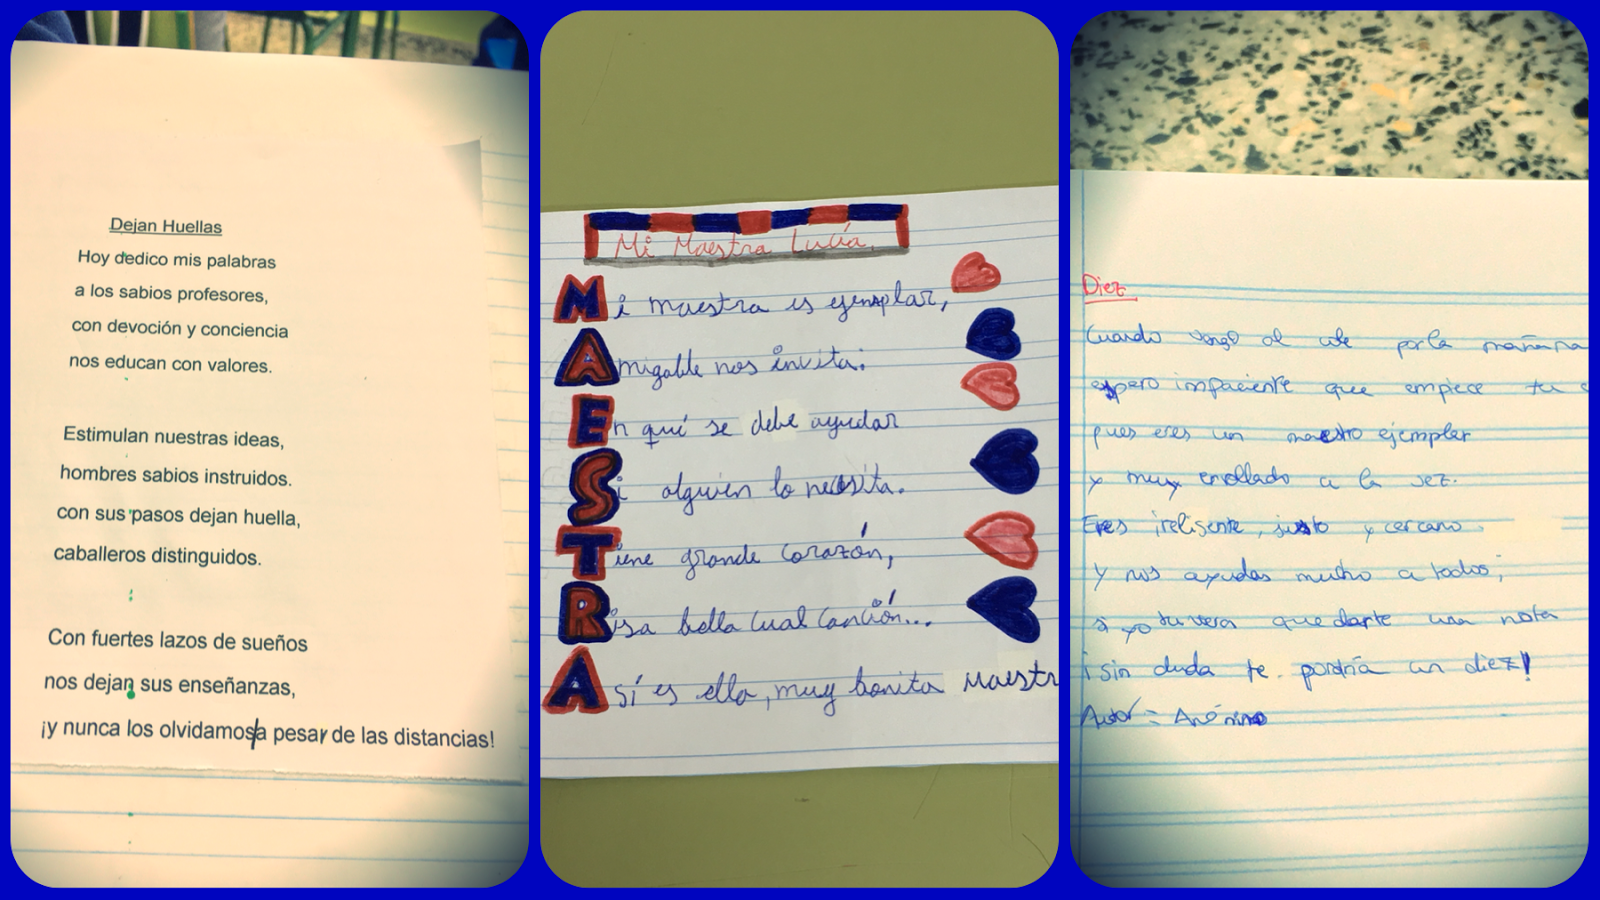 Dejan Huellas
Hoy dedico mis palabras
a los sabios profesores,
con devoción y conciencia
nos educan con valores.
Estimulan nuestras ideas,
hombres sabios instruidos.
con sus pasos dejan huella,
caballeros distinguidos.
Con fuertes lazos de sueños
nos dejan sus enseñanzas,
¡y nunca los olvidamos/a pesar de las distancias!
Mi Maestra Lucía
Mi maestra es ejemplar,
Amigable nos invita:
En qué se debe ayudar
Si alguien lo necesita.
Tiene grande corazón,
Risa bella cual canción...
Así es ella, muy bonita Maestr
Diez
Cuando vengo al cole por la mañana
espero impaciente que empiece tu
pues eres un maestro ejemplar
y muy enrollado a la vez.
Eres inteligente, justo y cercano.
Y nos ayudas mucho a todos,
si yo tuviera que darte una nota
¡sin duda te pondría un diez!
Autor = Anónimo